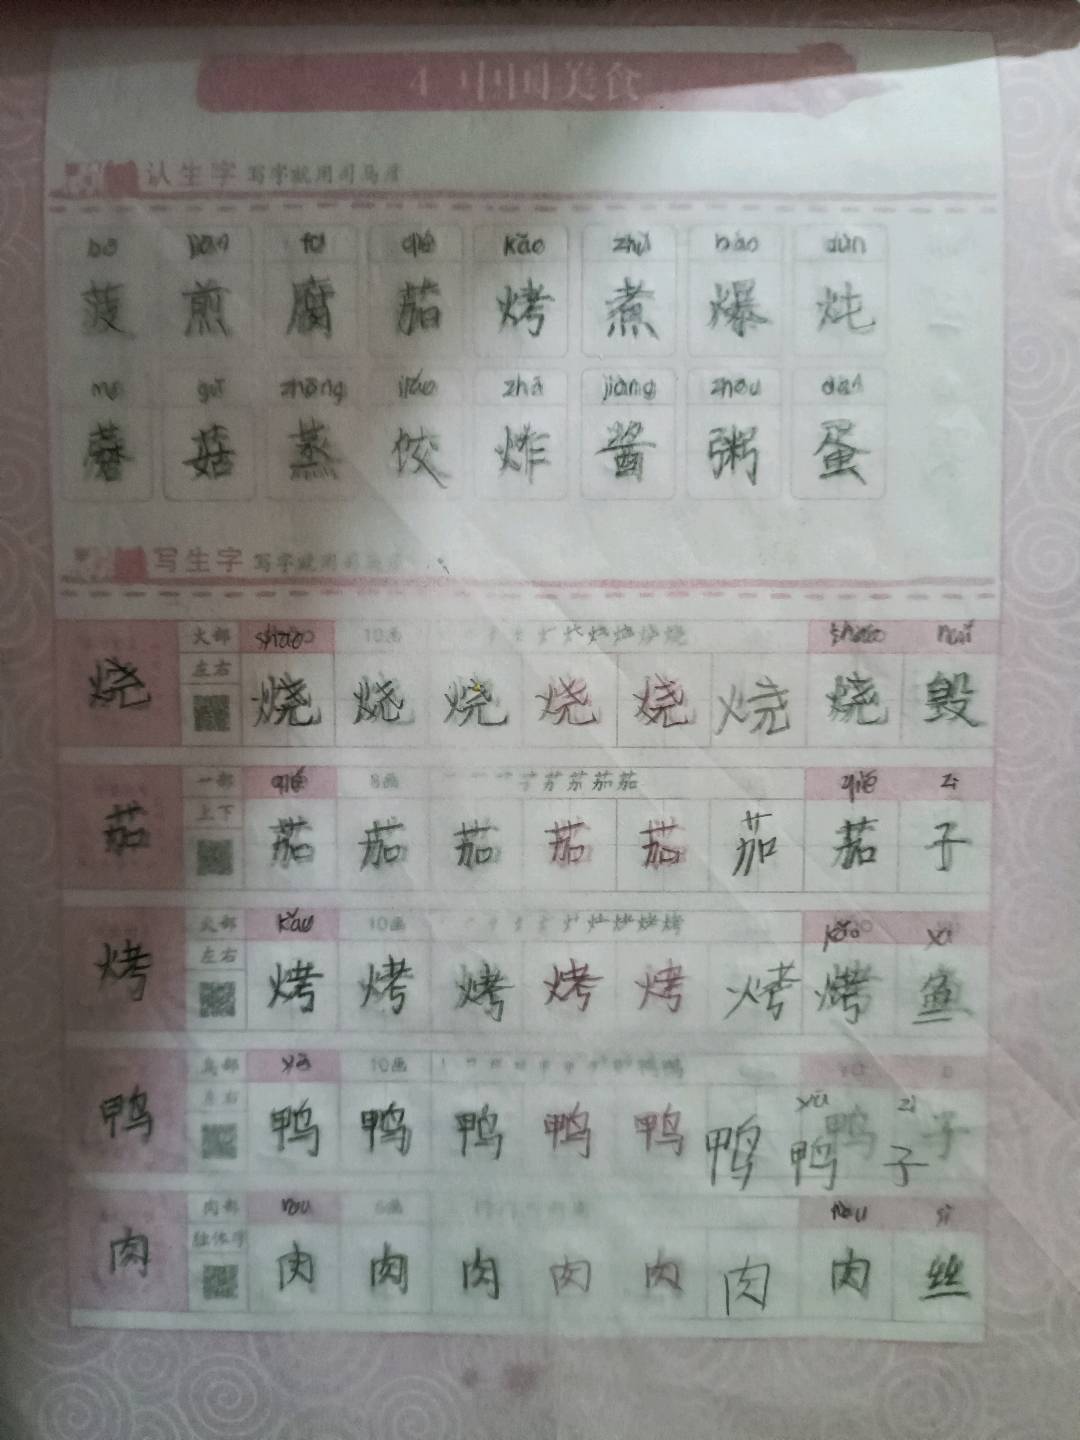 4 中国美食
认生字 写字就用司马彦
bō jiān fǔ qié kǎo zhǔ bào dùn
菠 煎 腐 茄 烤 煮 爆 炖
mó gū zhēng jiǎo zhá jiàng zhōu dàn
蘑 菇 蒸 饺 炸 酱 粥 蛋
写生字 写字就用司马彦
火部 shāo 10画 烧 烧 烧 烧 shāo huǐ
烧 左右 烧 烧 烧 烧 烧 烧 烧 毁
一部 qié 8画 茄 茄 qié zi
茄 上下 茄 茄 茄 茄 茄 茄 茄 子
火部 kǎo 10画 烤 烤 kǎo yú
烤 左右 烤 烤 烤 烤 烤 烤 烤 鱼
鸟部 yā 10画 鸭 鸭
鸭 左右 鸭 鸭 鸭 鸭 鸭 鸭 鸭 子
yā zi
鸭 子
肉部 ròu 6画 ròu sī
肉 独体字 肉 肉 肉 肉 肉 肉 肉 丝